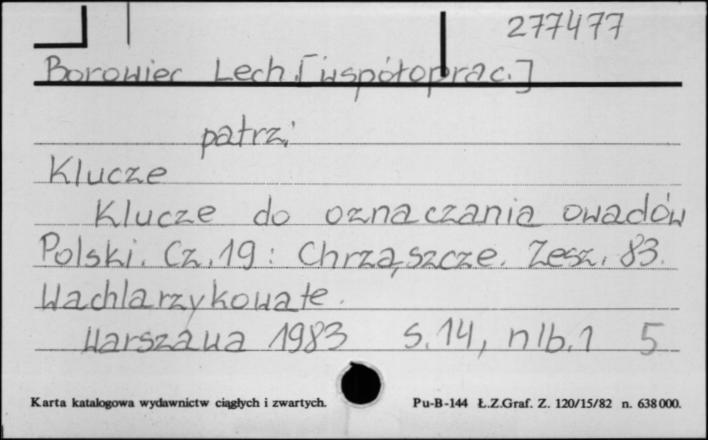 277477
Borowiec Lech. [współoprac.]
patrz:
Klucze
Klucze do oznaczania owadów
Polski. Cz. 19: Chrząszcze. Zesz. 83.
Wachlarzykowate.
Warszawa 1983 s. 14, nlb. 1 5
Karta katalogowa wydawnictw ciągłych i zwartych. Pu-B-144 Ł.Z.Graf. Z. 120/15/82 n. 638000.